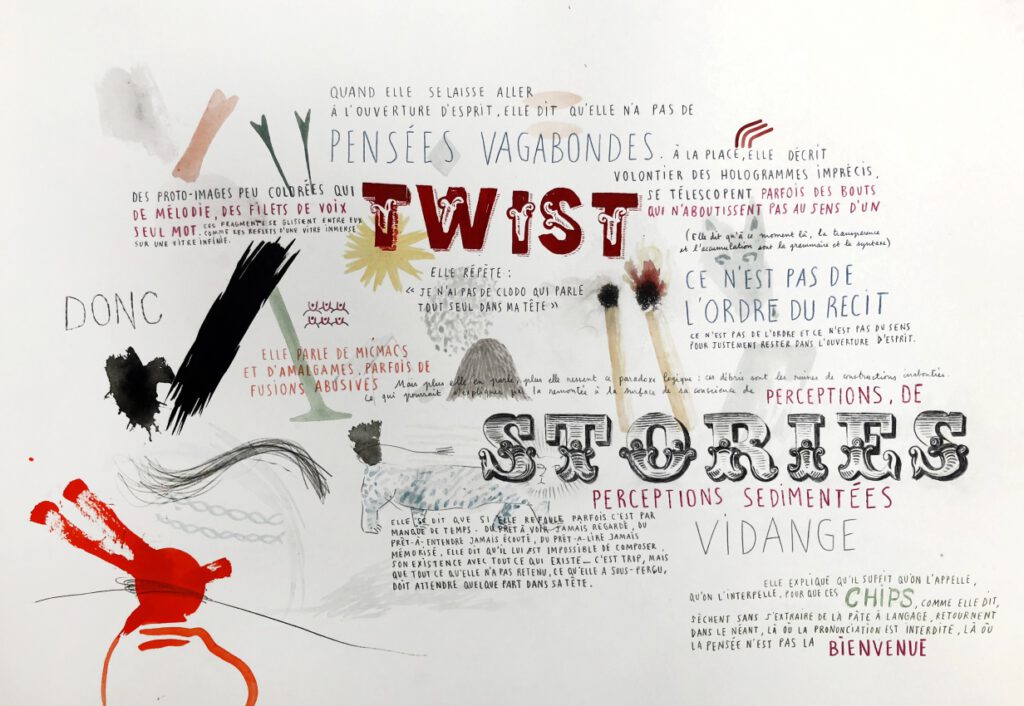 QUAND ELLE SE LAISSE ALLER
À L'OUVERTURE D'ESPRIT, ELLE DIT QU'ELLE N'A PAS DE
PENSÉES VAGABONDES. À LA PLACE, ELLE DÉCRIT
VOLONTIER DES HOLOGRAMMES IMPRÉCIS,
DES PROTO-IMAGES PEU COLORÉES QUI
TWIST
SE TÉLESCOPENT PARFOIS DES BOUTS
DE MÉLODIE, DES FILETS DE VOIX
QUI N'ABOUTISSENT PAS AU SENS D'UN
SEUL MOT. CES FRAGMENTS SE GLISSENT ENTRE EUX
COMME LES REFLETS D'UNE VITRE IMMENSE
SUR UNE VITRE INFINIE.
(Elle dit qu'à ce moment là, la transparence
et l'accumulation sont la grammaire et la syntaxe)
ELLE RÉPÈTE :
« JE N'AI PAS DE CLODO QUI PARLE
TOUT SEUL DANS MA TÊTE »
CE N'EST PAS DE
L'ORDRE DU RECIT
CE N'EST PAS DE L'ORDRE ET CE N'EST PAS DU SENS
POUR JUSTEMENT RESTER DANS L'OUVERTURE D'ESPRIT.
DONC
ELLE PARLE DE MICMACS
ET D'AMALGAMES, PARFOIS DE
FUSIONS ABUSIVES
Mais plus elle en parle, plus elle ressent ce paradoxe logique : ces débris sont les ruines de constructions inabouties.
Ce qui pourrait s'expliquer par la remontée à la surface de sa conscience de PERCEPTIONS, DE
STORIES
PERCEPTIONS SEDIMENTÉES
VIDANGE
ELLE SE DIT QUE SI ELLE REFOULE PARFOIS C'EST PAR
MANQUE DE TEMPS. DU PRÊT À VOIR JAMAIS REGARDÉ, DU
PRÊT-À-ENTENDRE JAMAIS ÉCOUTÉ, DU PRÊT-A-LIRE JAMAIS
MÉMORISÉ, ELLE DIT QU'IL LUI EST IMPOSSIBLE DE COMPOSER
SON EXISTENCE AVEC TOUT CE QUI EXISTE_ C'EST TROP, MAIS
QUE TOUT CE QU'ELLE N'A PAS RETENU, CE QU'ELLE A SOUS-PERÇU,
DOIT ATTENDRE QUELQUE PART DANS SA TÊTE.
ELLE EXPLIQUE QU'IL SUFFIT QU'ON L'APPELLE,
QU'ON L'INTERPELLE, POUR QUE CES CHIPS, COMME ELLE DIT,
SÈCHENT SANS S'EXTRAIRE DE LA PÂTE À LANGAGE, RETOURNENT
DANS LE NÉANT, LÀ OÙ LA PRONONCIATION EST INTERDITE, LÀ OÙ
LA PENSÉE N'EST PAS LA BIENVENUE